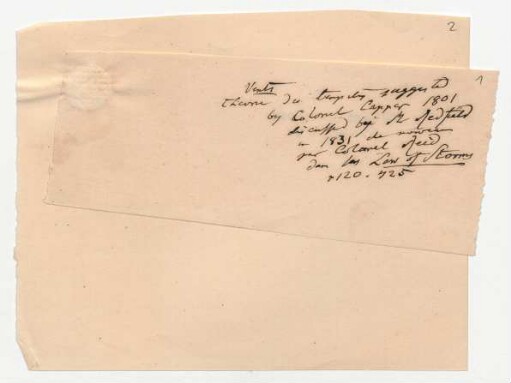 2
1
Vents
Theorie des tempetes suggested
by Colonel Capper 1801
discussed by Mr Redfield
in 1831 de nouveau
par Colonel Reed
dans les Law of Storms
p 120. 425